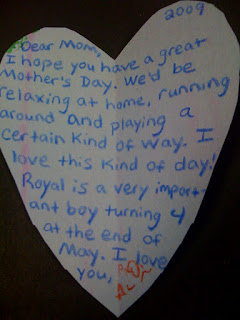 2009
Dear Mom,
I hope you have a great
Mother's Day. We'd be
relaxing at home, running
around and playing a
certain kind of way. I
love this kind of day!
Royal is a very import-
ant boy turning 4
at the end of
May. I love
you,